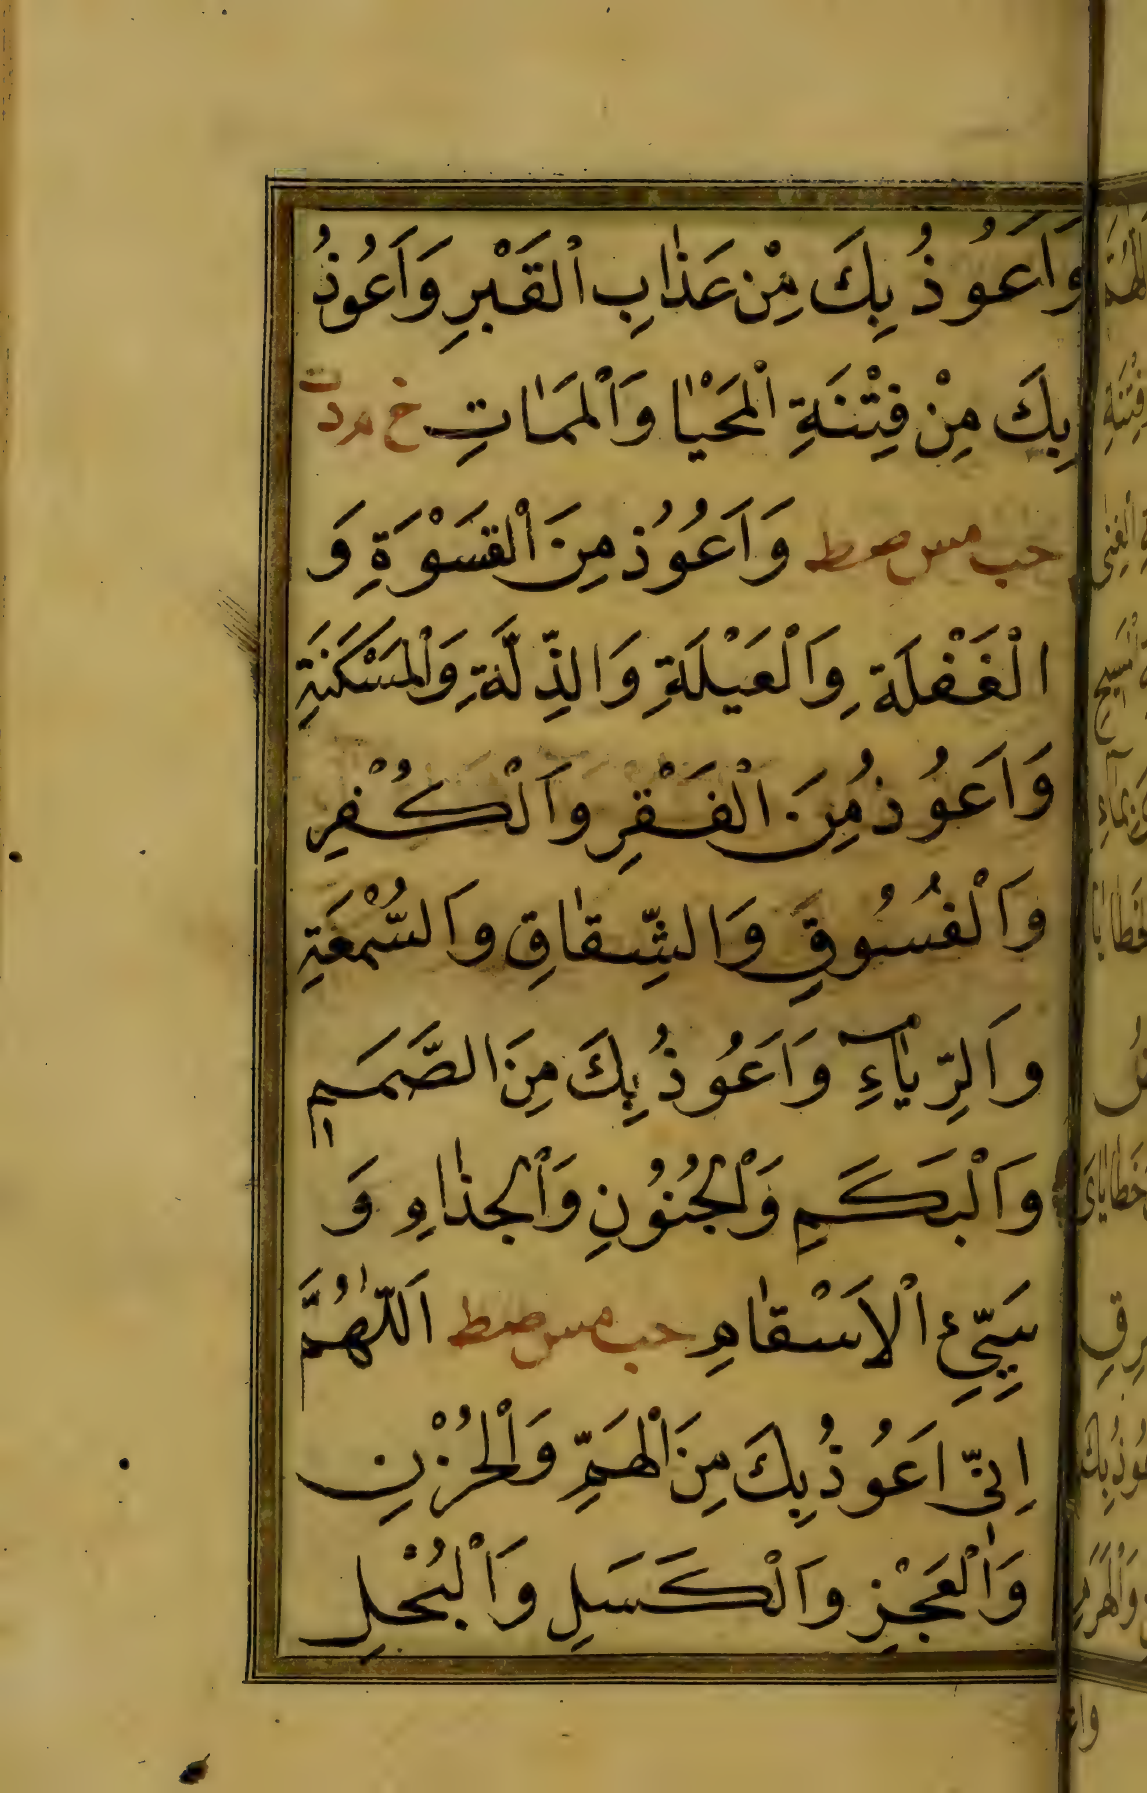 وَاَعُوذُ بِكَ مِنْ عَذَابِ الْقَبْرِ وَاَعُوذُ
بِكَ مِنْ فِتْنَةِ الْمَحْيَا وَالْمَمَاتِ خ م د ت
حب مس صط وَاَعُوُذ مِنَ الْقَسْوَةِ وَ
الْغَفْلَةِ وَالْعَيْلَةِ وَالذِّلَّةِ وَالْمَسْكَنَةِ
وَاَعُوذُ مِنَ الْفَقْرِ وَالْكُفْرِ
وَالْفُسُوقِ وَالشِّقَاقِ وَالسُّمْعَةِ
وَالرِّيَاءِ وَاَعُوذُ بِكَ مِنَ الصَّمَمِ
وَالْبَكَمِ وَالْجُنُونِ وَالْجُذَامِ وَ
سَيِّئِ الْاَسْقَامِ حب مس صط اَللّٰهُمَّ
اِنِّى اَعُوذُ بِكَ مِنَ الْهَمِّ وَالْحُزْنِ
وَالْعَجْزِ وَالْكَسَلِ وَالْبُخْلِ